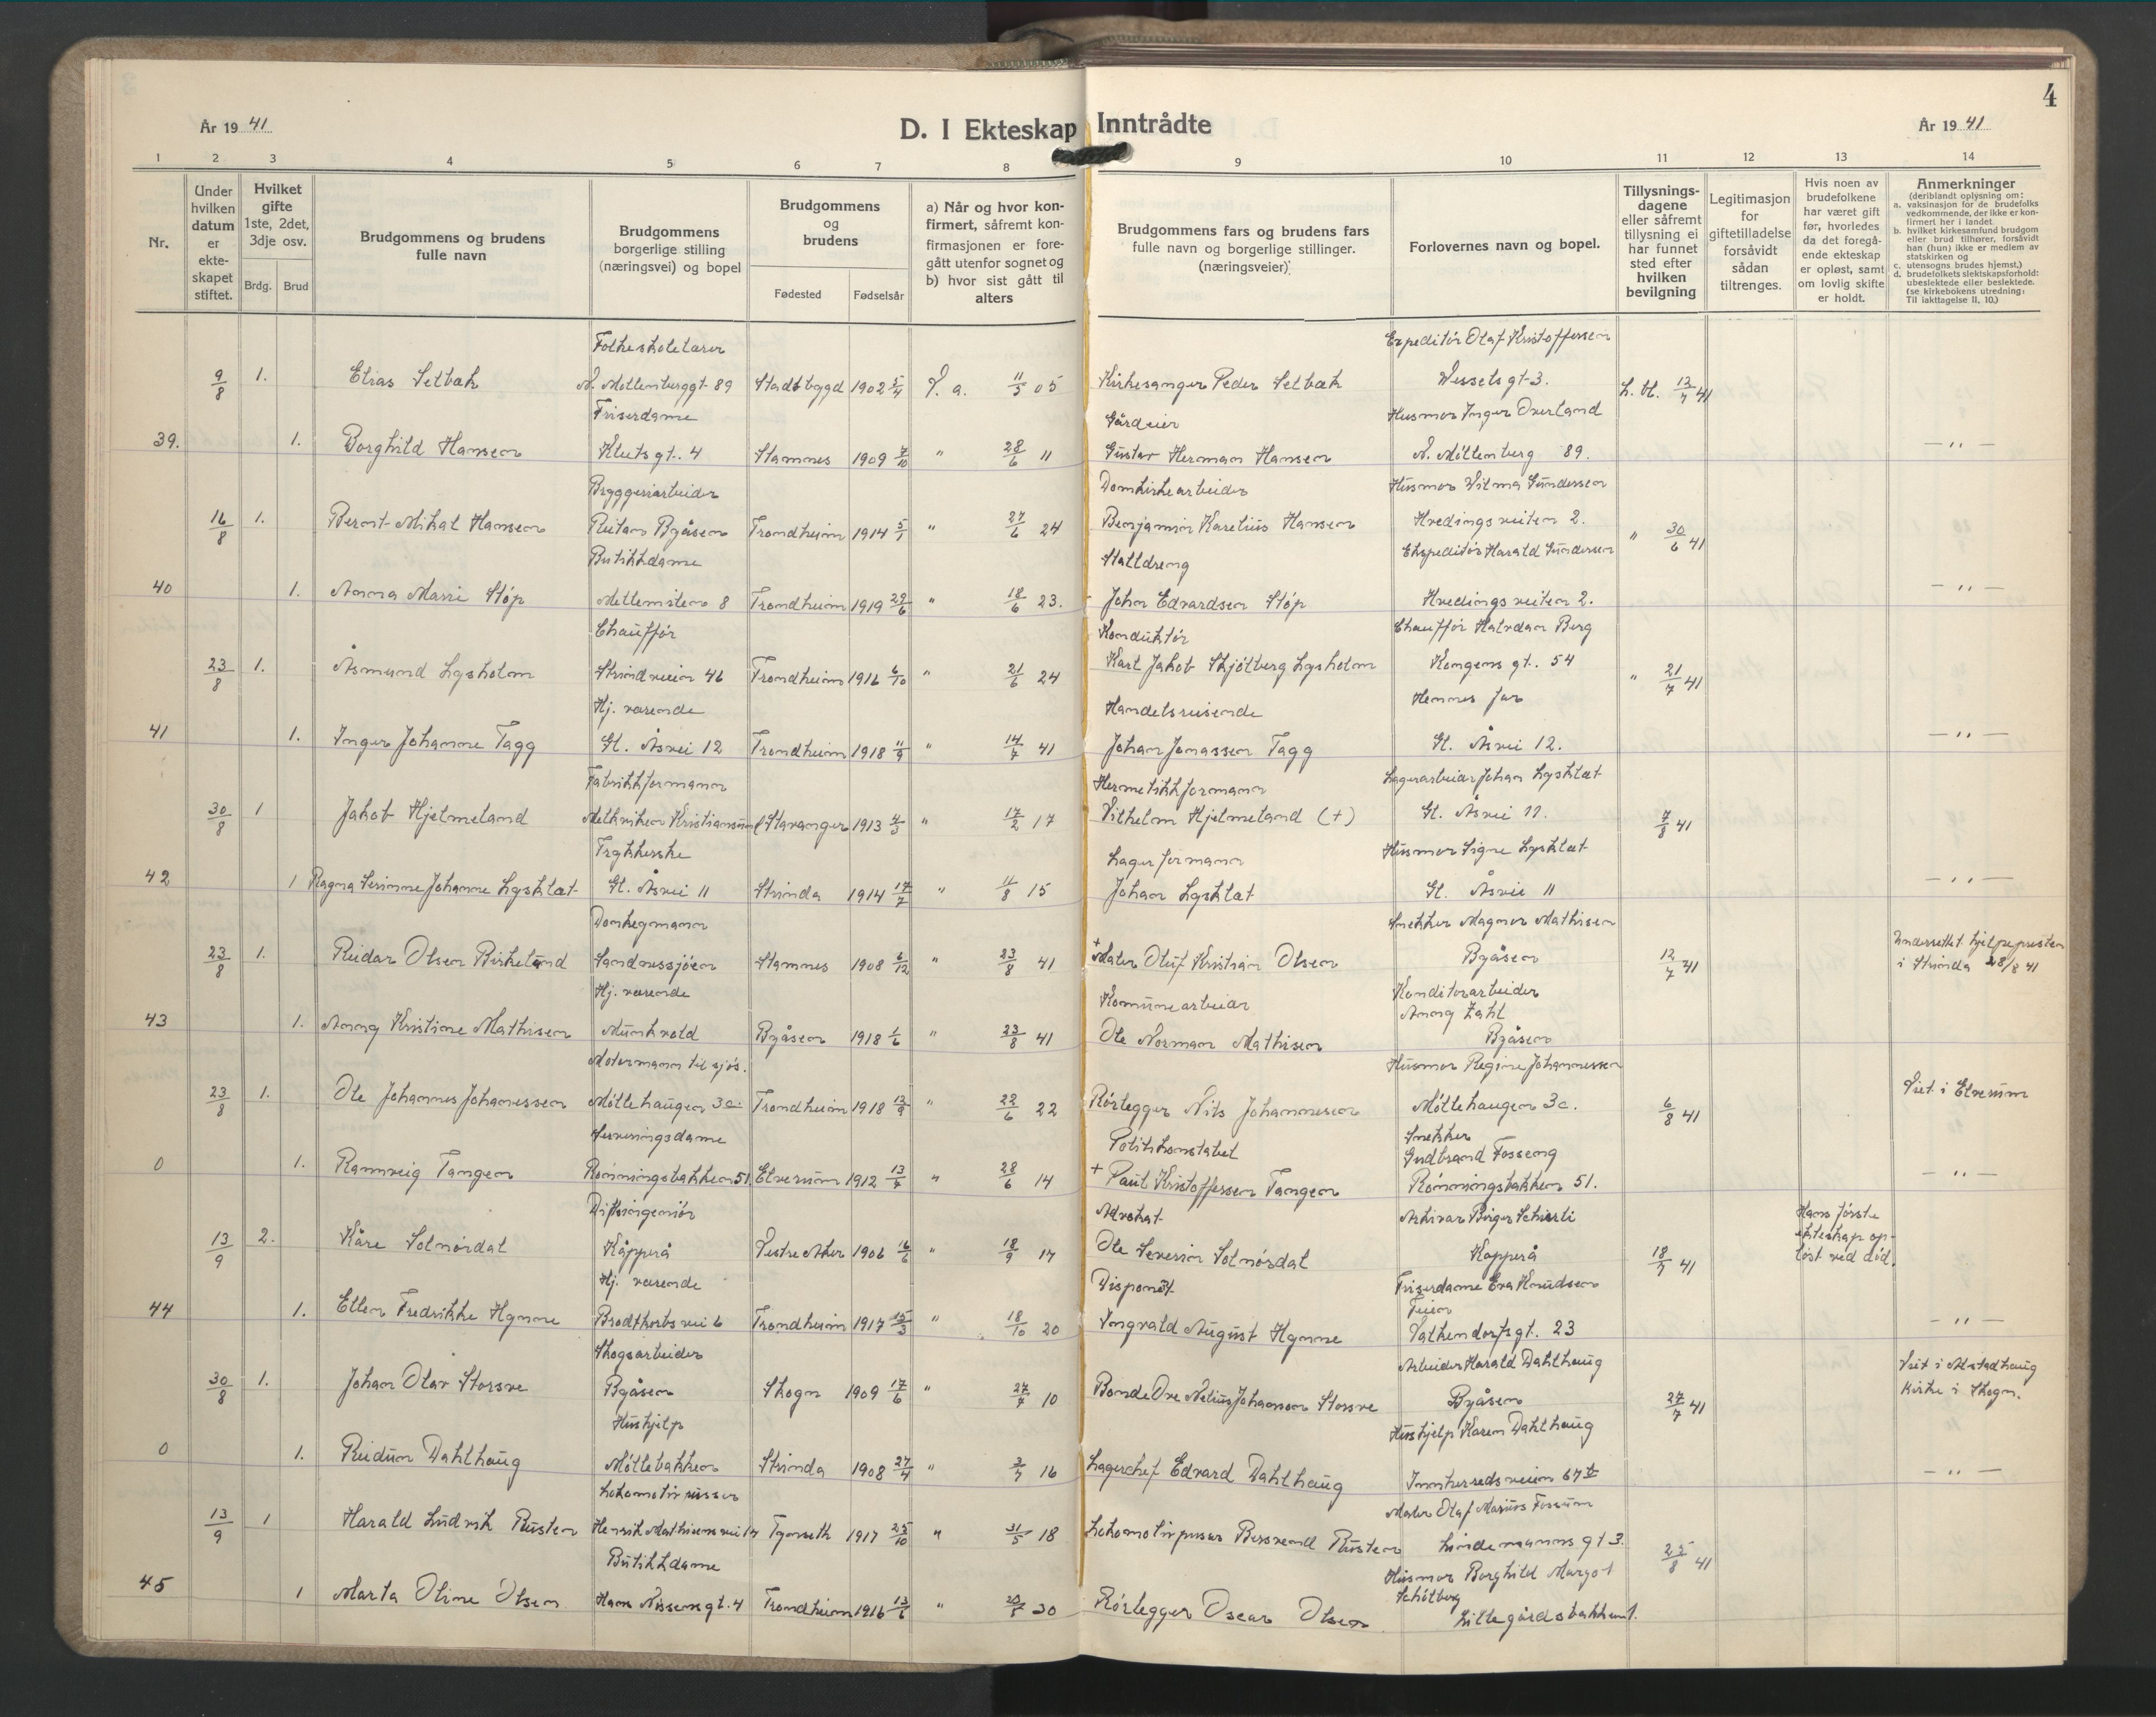 4
År 1941
D. I Ekteskap Inntrådte
År 1941
1 2 3 4 5 6 7 8 9 10 11 12 13 14
Nr.
Under hvilken datum er ekte-skapet stiftet.
Hvilket gifte 1ste, 2det, 3dje osv.
Brdg. Brud
Brudgommens og brudens fulle navn
Brudgommens borgerlige stilling (næringsvei) og bopel
Brudgommens og brudens
Fødested Fødselsår
a) Når og hvor kon-firmert, såfremt kon-firmasjonen er fore-gått utenfor sognet og b) hvor sist gått til alters
Brudgommens fars og brudens fars fulle navn og borgerlige stillinger. (næringsveier)
Forlovernes navn og bopel.
Tillysnings-dagene eller såfremt tillysning ei har funnet sted efter hvilken bevilgning
Legitimasjon for giftetilladelse forsåvidt sådan tiltrenges.
Hvis noen av brudefolkene har været gift før, hvorledes da det foregå-ende ekteskap er opløst, samt om lovlig skifte er holdt.
Anmerkninger
(deriblandt oplysning om:
a. vaksinasjon for de brudefolks vedkommende, der ikke er kon-firmert her i landet
b. hvilket kirkesamfund brudgom eller brud tilhører, forsåvidt han (hun) ikke er medlem av statskirken og
c. utensogns brudes hjemst.)
d. brudefolkets slektskapsforhold: ubeslektede eller beslektede. (se kirkebokens utredning: Til iakttagelse II, 10.)
Folkeskolelærer Expeditør Olaf Kristoffersen
9/8 1. Elias Selbæk N. Møllenberggt 89 Stadsbygd 1902 5/4 11/5 05 Kirkesanger Peder Selbæk Wessels gt 3. 41
Friserdame Gårdeier Husmor Inger Overland
39. 1. Borghild Hansen Kluts gt. 4 Stamnes 1909 7/10 " 28/6 11 Gustav Herman Hansen N. Møllenberg 89. — " —
Bryggeriarbeider Domkirkearbeider Husmor Vilma Gundersen
16/8 1. Bernt Mikal Hansen Byåsen Trondheim 1914 5/1 " 27/6 24 Benjamin Karelius Hansen Hvedingsveiten 2. " 30/6 41
Butikkdame Stalldreng Ekspeditør Harald Gundersen
40 1. Anna Marie Støp Mellemilen 8 Trondheim 1919 29/6 " 18/6 23. Johan Edvardsen Støp Hvedingsveiten 2. — " —
Chauffør Konduktør Chauffør Halvdan Berg
23/8 1. Åsmund Lysholm Strindveien 46 Trondheim 1916 6/10 " 21/6 24 Karl Jakob Skjølberg Lysholm Kongens gt. 54 " 21/7 41
Hj. værende Handelsreisende Hennes far
41 1. Inger Johanne Tagg Gl. Åsvei 12 Trondheim 1918 11/9 " 14/7 41 Johan Jonassen Tagg Gl. Åsvei 12. — " —
Fabrikkformann Hermetikkformann Lagerarbeider Johan Lysklæt
30/8 1 Jakob Hjelmeland Kristiansund Stavanger 1913 4/3 " 17/2 17 Vilhelm Hjelmeland (+) Gl. Åsvei 11. 7/8 41
Trykkerske Lagerformann Husmor Signe Lysklæt
42 1 Ragna Serinne Johanne Lysklæt Gl. Åsvei 11 Strinda 1914 17/7 " 11/8 15 Johan Lysklæt Gl. Åsvei 11 — " —
Donkeymann Snekker Magnor Mathisen
23/8 1. Reidar Olsen Birkeland Sandnessjøen Stamnes 1908 6/12 " 23/8 41 + Maler Oluf Kristian Olsen Byåsen 12/7 41 Underrettet hjelpepresten i Strinda 28/8 41
Hj. værende Komunearbeider Konditorarbeider
43 1. Anny Kristine Mathisen Munkvold Byåsen 1918 1/6 " 23/8 41 Ole Norman Mathisen Anny Zahl Byåsen
Motormann til sjøs. Husmor Regine Johannessen
23/8 1. Ole Johannes Johannessen Møllehaugen 3c. Trondheim 1918 13/9 " 22/6 22 Rørlegger Nils Johannesen Møllehaugen 3c. 6/8 41 Viet i Elverum
Serveringsdame Politikonstabel Snekker Gudbrand Fosseng
0 1. Rannveig Tangen Rønningsbakken 51 Elverum 1912 13/7 " 28/6 14 + Paul Kristoffersen Tangen Rønningsbakken 51. — " —
Diplingeniør Advokat Arkivar Birger Schierli Hans første ekteskap op-løst ved død.
13/9 2. Kåre Solnørdal Kopperå Vestre Aker 1906 16/6 " 18/9 17 Ole Severin Solnørdal Kopperå 18/7 41
Hj. værende Disponent Friserdame Eva Knudsen Feien
44 1. Ellen Fredrikke Hynne Brodtkorbs vei 6 Trondheim 1917 15/3 " 18/10 20 Yngvald August Hynne Vathendorfsgt. 23 — " —
Skogsarbeider Arbeider Harald Dahlhaug
30/8 1. Johan Olav Storsve Byåsen Skogn 1909 17/6 " 27/7 10 Bonde Ove Nelius Johansen Storsve Byåsen 27/7 41 Viet i Alstadhaug Kirke i Skogn.
Hushjelp Hushjelp Karen Dahlhaug
0 1. Reidun Dahlhaug Møllebakken Strinda 1908 27/4 " 2/7 16 Lagerchef Edvard Dahlhaug Innherredsveien 67 b — " —
Lokomotivpusser Maler Olaf Marius Fossum
13/9 1 Harald Ludvik Rusten Henrik Mathisens vei 17 Tynset 1917 25/10 " 31/5 18 Lokomotivpusser Bersvend Rusten Lindemanns gt 3. 25/8 41
Butikkdame Husmor Borghild Margot Schølberg
45 1 Marta Oline Olsen Hans Nissens gt. 4 Trondheim 1916 13/6 " 30 Rørlegger Oscar Olsen Lillegårdsbakken 1.